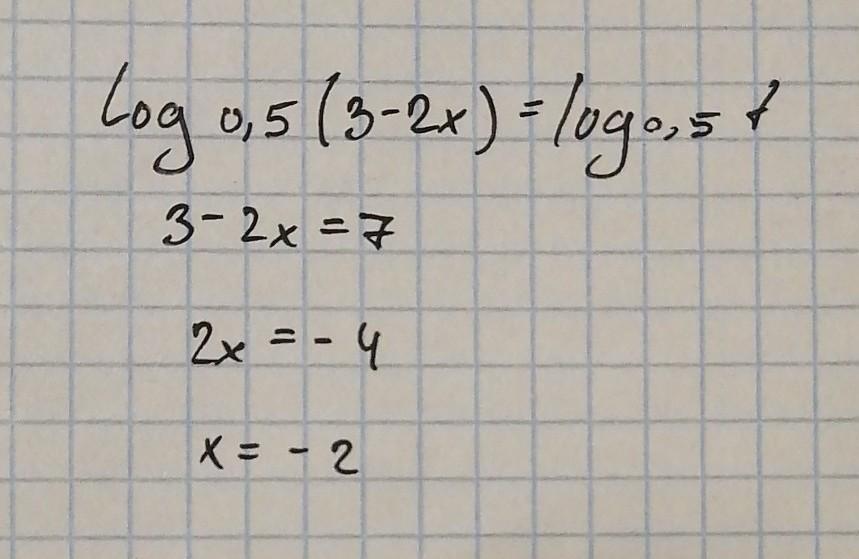 log 0,5 (3-2x) = log 0,5 7
3-2x = 7
2x = - 4
x = - 2